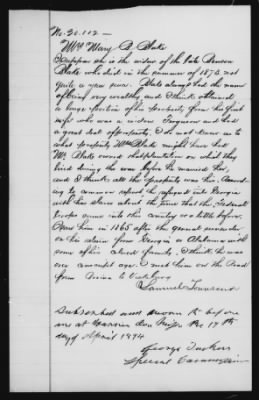 No. 20.112 —
Mrs Mary B. Blake
I suppose she is the widow of the late Benson
Blake who died in the summer of 1870. not
quite a year since. Blake always had the name
of being very wealthy and I think obtained
a large portion of his property from his first
wife who was a widow Ferguson and had
a great deal of property. I do not know as to
what property Mrs Blake might have had
Mr Blake owned that plantation on which they
lived during the war before he married her,
and I think all the property was his. Accord-
ing to common report he refugeed into Georgia
with his slaves about the time that the Federal
troops came into this country or a little before.
I saw him in 1865 after the general surrender
on his return from Georgia or Alabama with
some of his colored family. I think he was
over conscript age. I saw him on the Road
from to Vicksburg
Samuel Townsend
Subscribed and sworn to before
me at Warren Co. Miss. the 17th
day of April 1874
George Tucker
Special Commissioner